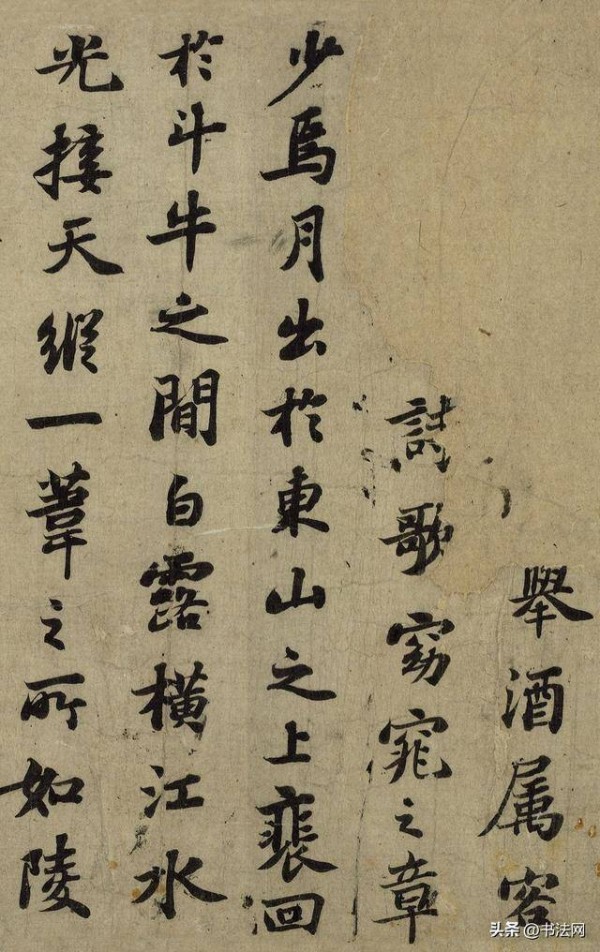 舉酒属客
詩歌窈窕之章
少焉月出於東山之上裴回
於斗牛之間白露橫江水
光接天縱一葦之所如陵
头条@书法网